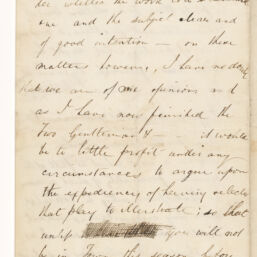 whether the work is a
one and the subject clean and
of good intention — on these
matters however, I have no doubt
that we are of one opinion and
as I have now finished the
Two Gentlemen & — it would
be to little profit under any
circumstances to argue upon
the expediency of having selected
that play to illustrate; so that
unless you will not
be in Town this season before